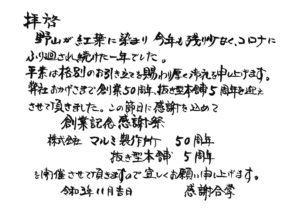 拝啓
野山が紅葉に染まり 今年も残り少なく、コロナに
ふり廻され続けた一年でした。
平素は格別のお引き立てを賜わり厚く御礼を申し上げます。
弊社おかげさまで創業50周年、抜き型本舗5周年を迎え
させて頂きました。この節目に感謝を込めて
創業記念感謝祭
株式会社 マルミ製作所 50周年
抜き型本舗 5周年
を開催させて頂きますので宜しくお願い申し上げます。
令和3年11月吉日 感謝合掌